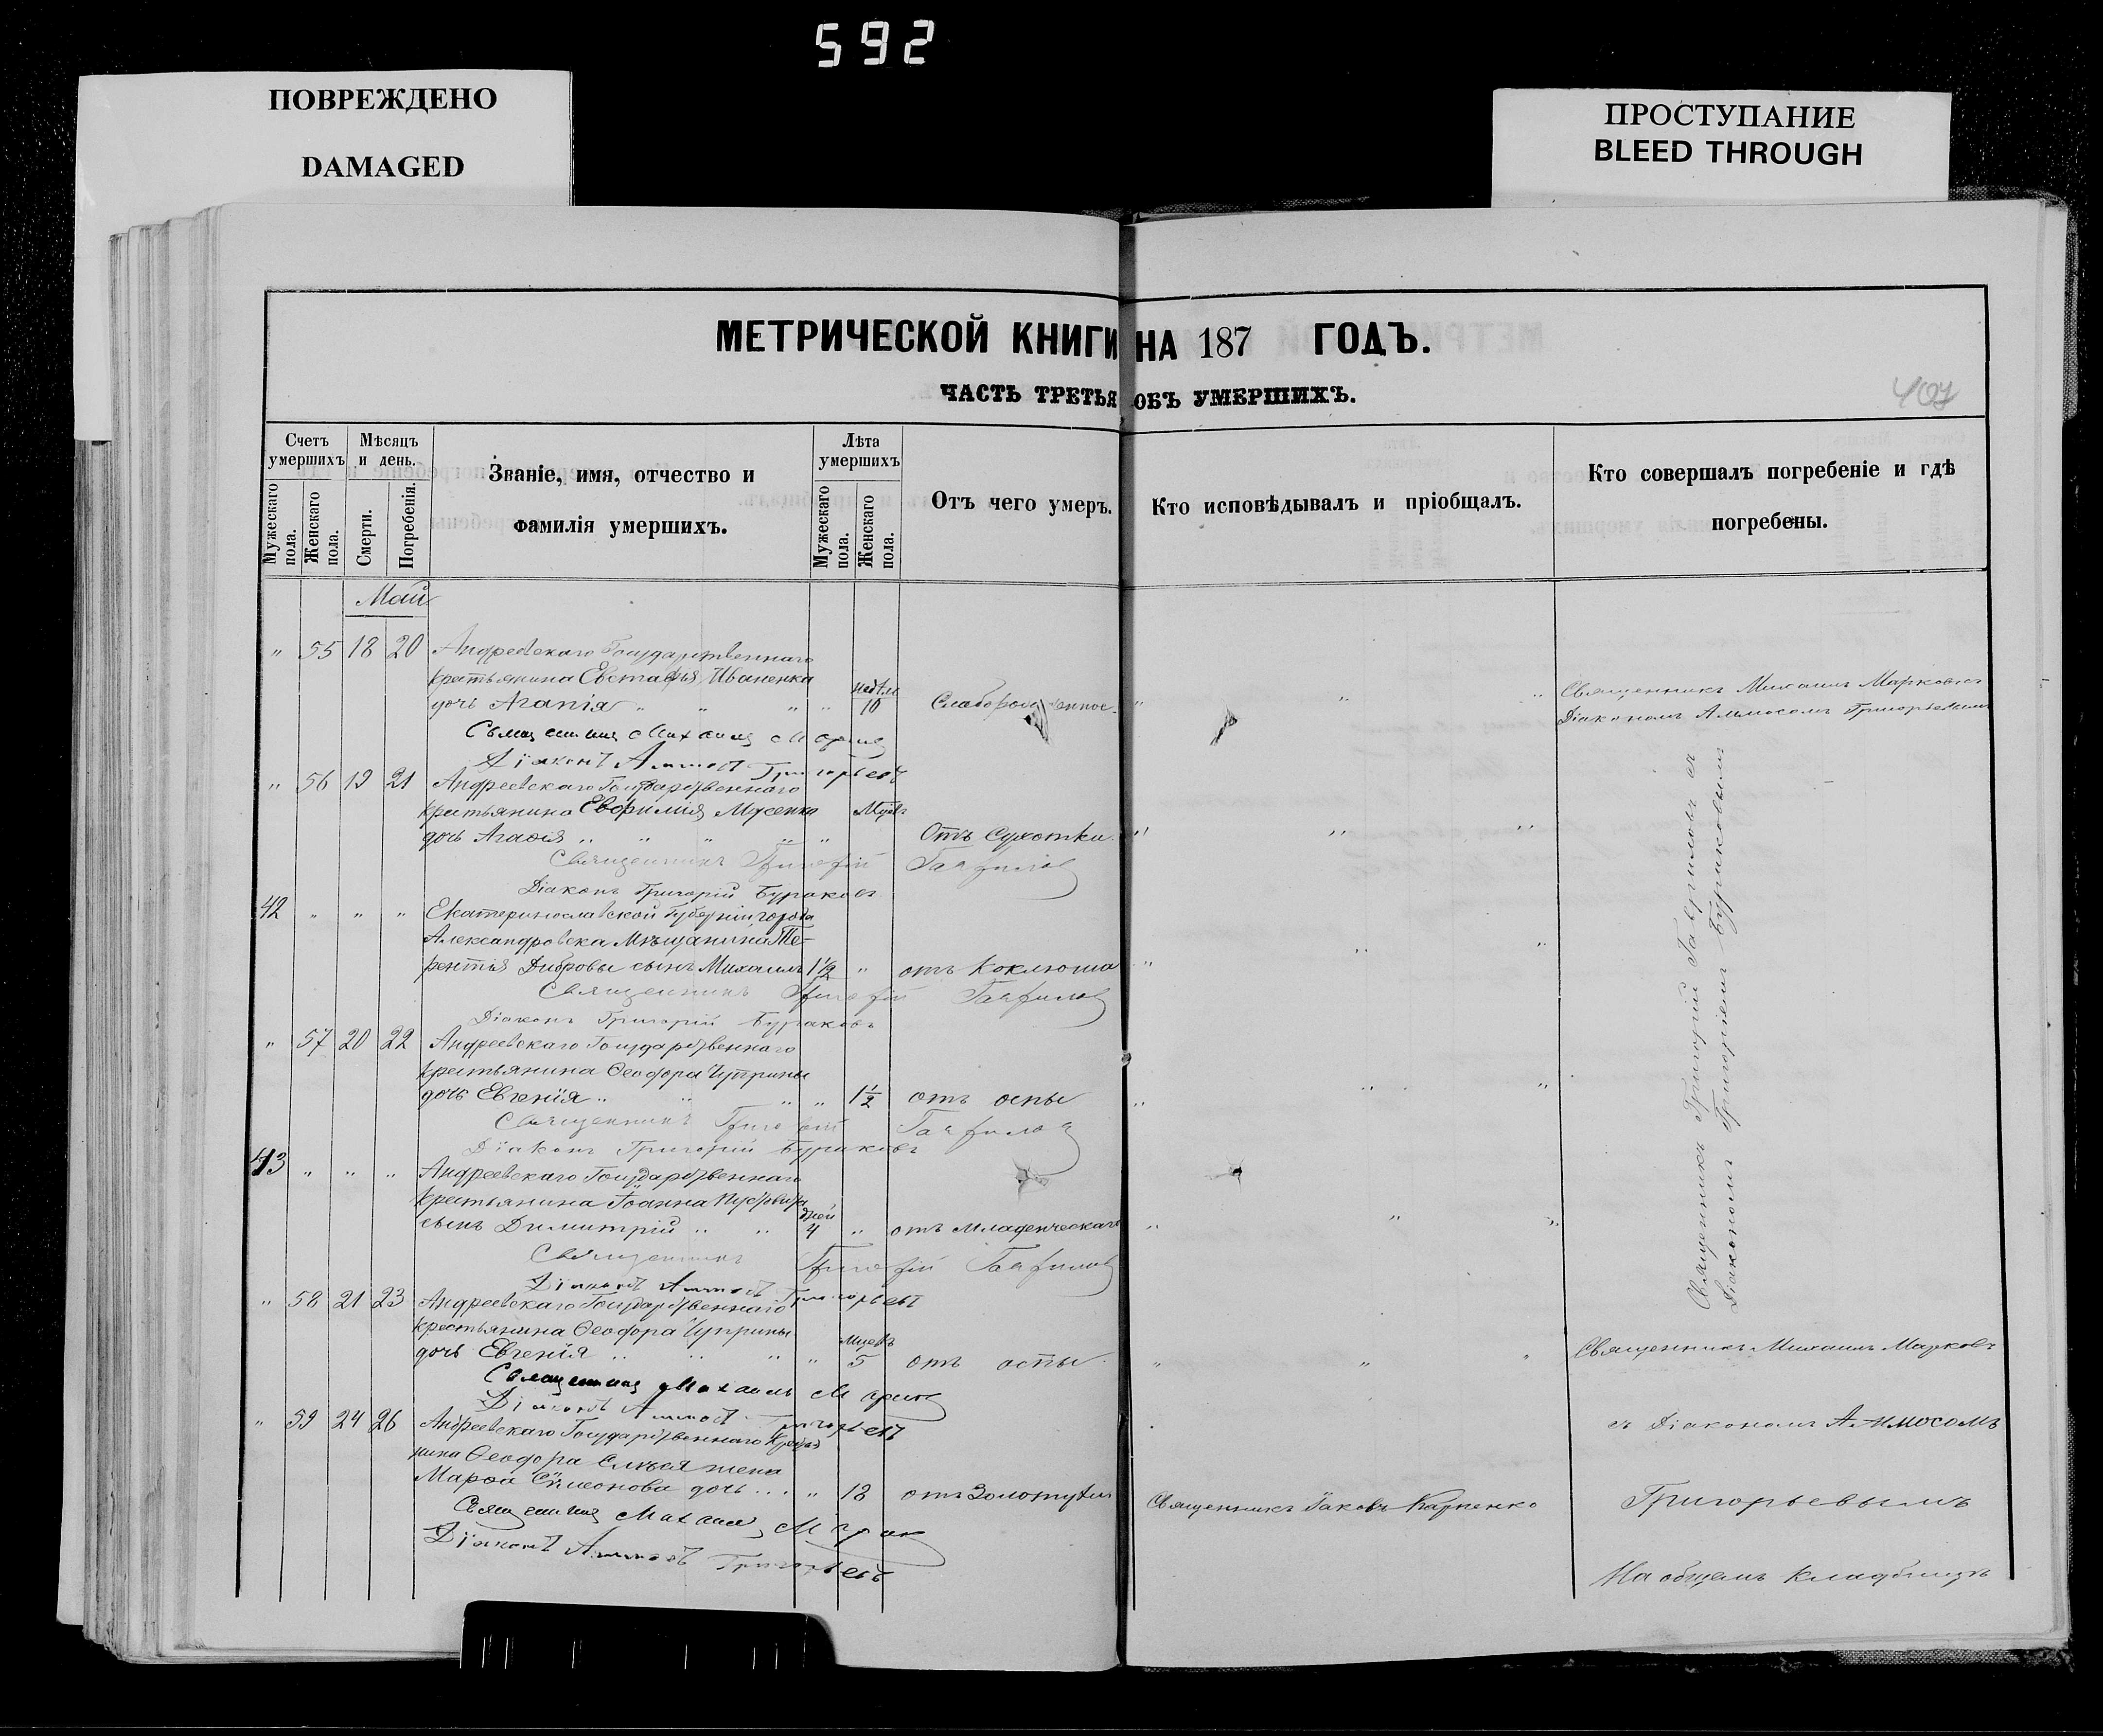 592
ПОВРЕЖДЕНО
DAMAGED
ПРОСТУПАНИЕ
BLEED THROUGH
МЕТРИЧЕСКОЙ КНИГИ НА 187 ГОДЪ.
ЧАСТЬ ТРЕТЬЯ ОБЪ УМЕРШИХЪ.
407
Счетъ умершихъ
Мужескаго пола.
Женскаго пола.
Мѣсяцъ и день.
Смерти.
Погребенія.
Званіе, имя, отчество и
фамилія умершихъ.
Лѣта умершихъ
Мужескаго пола.
Женскаго пола.
Отъ чего умеръ.
Кто исповѣдывалъ и пріобщалъ.
Кто совершалъ погребеніе и гдѣ
погребены.
Май
" 55 18 20 Андреевскаго Государственнаго
крестьянина Евстафія Иваненка
дочь Агапія " " " " недѣль 10 " " "
Священникъ Михаилъ Марковъ
Діаконъ Аммосъ Григорьевъ
Священникъ Михаилъ Марковъ съ
Діакономъ Аммосомъ Григорьевымъ
" 56 19 21 Андреевскаго Государственнаго
крестьянина Мусенка
дочь Агафія " " " " " Отъ Сухотки. " " "
Священникъ Григорій Гавриловъ
Діаконъ Григорій Бураковъ
42 " " " Екатеринославской Губерніи города
Александровска Мѣщанина Те-
рентія Дибровы сынъ Михаилъ 1½ " отъ Коклюша " " "
Священникъ Григорій Гавриловъ
Діаконъ Григорій Бураковъ
" 57 20 22 Андреевскаго Государственнаго
крестьянина Ѳеодора Чуприны
дочь Евгенія " " " " 1½ отъ оспы " " "
Священникъ Григорій Гавриловъ
Діаконъ Григорій Бураковъ
43 " " " Андреевскаго Государственнаго
крестьянина Іоанна
сынъ Димитрій " " дней 4 " отъ Младенческаго " " "
Священникъ Григорій Гавриловъ
Діаконъ Аммосъ Григорьевъ
Священникъ Григорій Гавриловъ съ
Діакономъ Григоріемъ Бураковымъ
" 58 21 23 Андреевскаго Государственнаго
крестьянина Ѳеодора Чуприны
дочь Евгенія " " " " 5 отъ оспы " " "
Священникъ Михаилъ Марковъ
Діаконъ Аммосъ Григорьевъ
" 59 24 26 Андреевскаго Государственнаго
нина Ѳеодора жена
Марѳа Симонова дочь " 18 отъ Золотухи Священникъ Іаковъ Карпенко
Священникъ Михаилъ Марковъ
Діаконъ Аммосъ Григорьевъ
Священникъ Михаилъ Марковъ
съ Діакономъ Аммосомъ
Григорьевымъ
На общемъ кладбищѣ